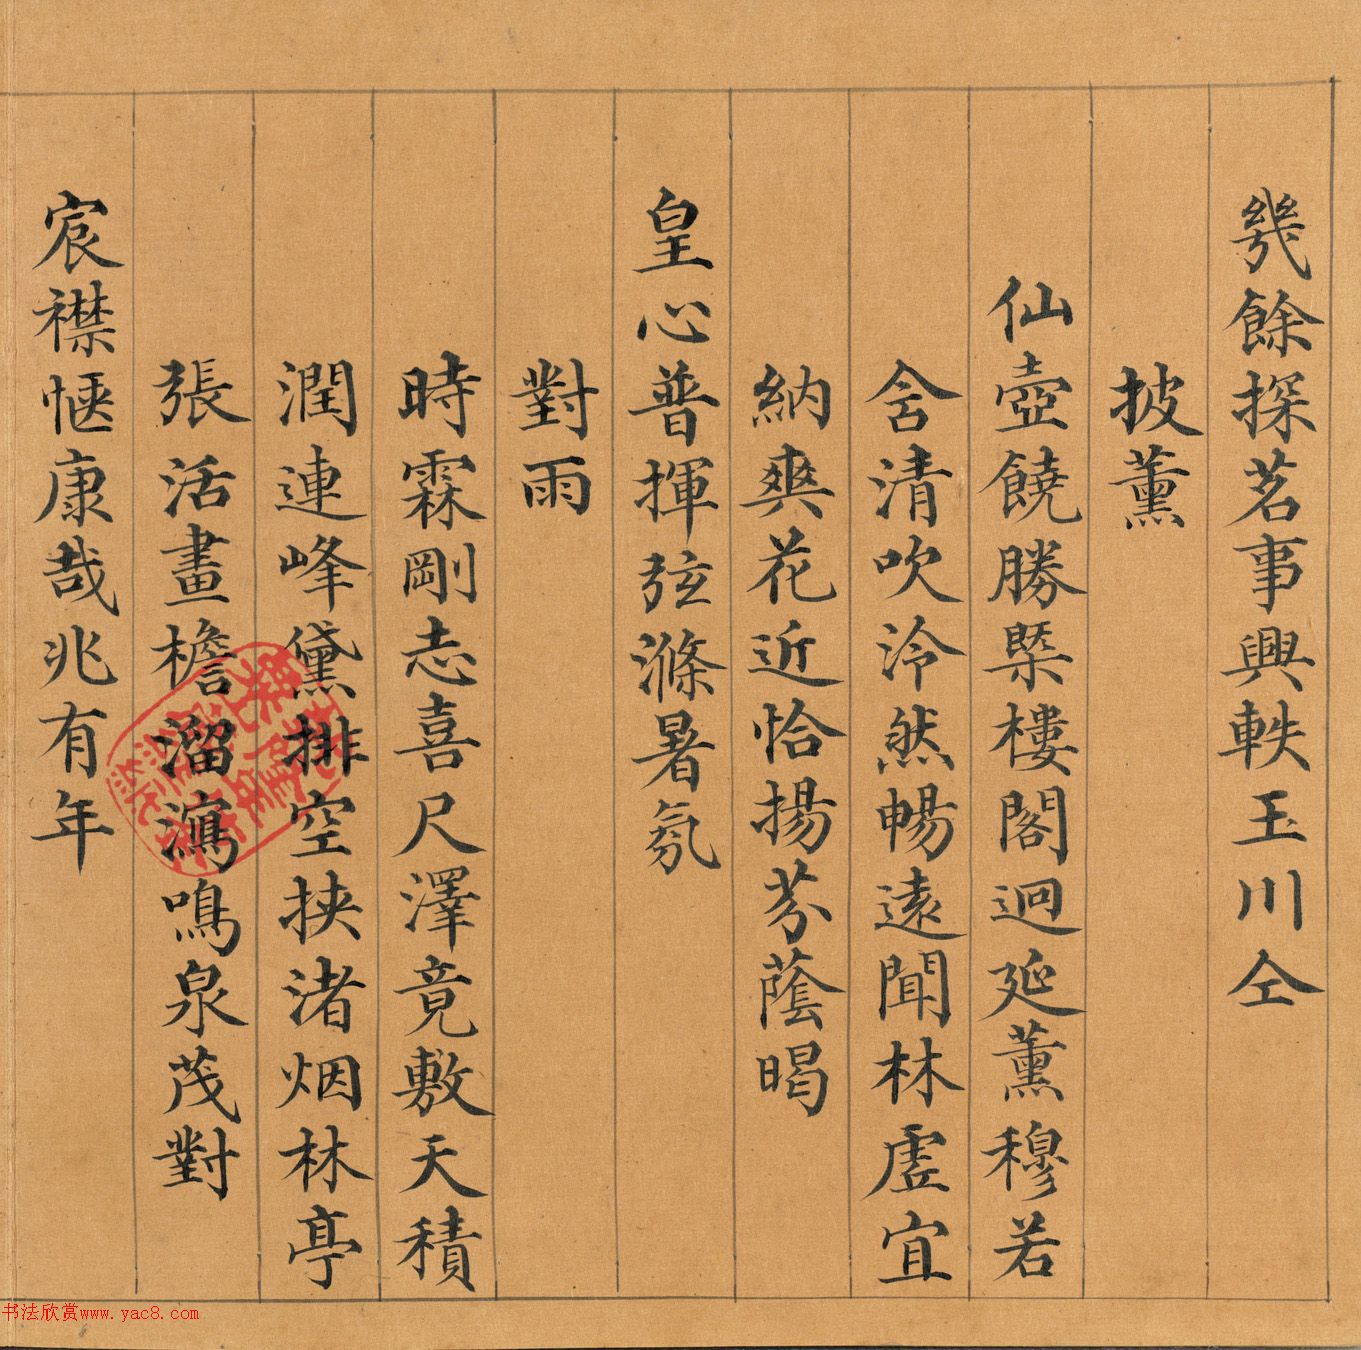 幾餘探茗事興軼玉川仝
披薰
仙壺饒勝槩樓閣迥延薰穆若
含清吹泠然暢遠聞林虛宜
納爽花近恰揚芬蔭暍
皇心普揮弦滌暑氛
對雨
時霖剛志喜尺澤竟敷天積
潤連峰黛排空挾渚烟林亭
張活畫檐溜瀉鳴泉茂對
宸襟愜康哉兆有年
书法欣赏www.yac8.com